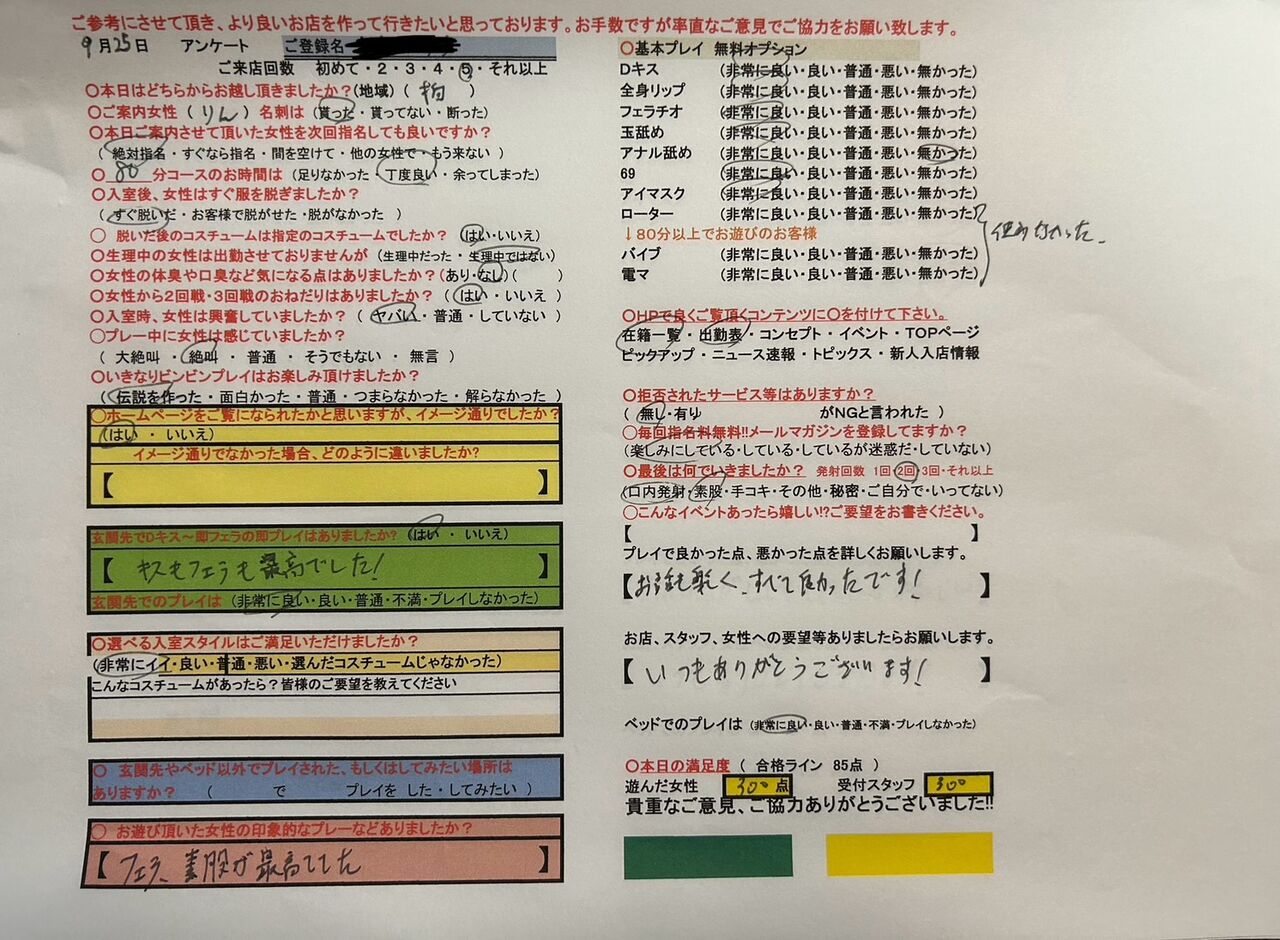 ご参考にさせて頂き、より良いお店を作って行きたいと思っております。お手数ですが率直なご意見でご協力をお願い致します。
9月25日 アンケート ご登録名
ご来店回数 初めて・2・3・4・5・それ以上
〇本日はどちらからお越し頂きましたか?(地域) ( 柏 )
〇ご案内女性 ( りん ) 名刺は (貰った・貰ってない・断った)
〇本日ご案内させて頂いた女性を次回指名しても良いですか?
( 絶対指名・すぐなら指名・間を空けて・他の女性で・もう来ない )
〇 80 分コースのお時間は (足りなかった・丁度良い・余ってしまった)
〇入室後、女性はすぐ服を脱ぎましたか?
( すぐ脱いだ・お客様で脱がせた・脱がなかった )
〇 脱いだ後のコスチュームは指定のコスチュームでしたか? (はい・いいえ)
〇生理中の女性は出勤させておりませんが (生理中だった・生理中ではない)
〇女性の体臭や口臭など気になる点はありましたか?(あり・なし)( )
〇女性から2回戦・3回戦のおねだりはありましたか? ( はい・いいえ )
〇入室時、女性は興奮していましたか? ( ヤバい・普通・していない )
〇プレー中に女性は感じていましたか?
( 大絶叫 ・ 絶叫 ・ 普通 ・ そうでもない ・ 無言 )
〇いきなりビンビンプレイはお楽しみ頂けましたか?
( 伝説を作った・面白かった・普通・つまらなかった・解らなかった )
〇ホームページをご覧になられたかと思いますが、イメージ通りでしたか?
(はい ・ いいえ)
イメージ通りでなかった場合、どのように違いましたか?
【 】
玄関先でDキス～即フェラの即プレイはありましたか? (はい ・ いいえ)
【 キスもフェラも最高でした! 】
玄関先でのプレイは (非常に良い・良い・普通・不満・プレイしなかった)
〇選べる入室スタイルはご満足いただけましたか?
(非常にイイ・良い・普通・悪い・選んだコスチュームじゃなかった)
こんなコスチュームがあったら?皆様のご要望を教えてください
〇 玄関先やベッド以外でプレイされた、もしくはしてみたい場所は
ありますか? ( で プレイを した・してみたい )
〇 お遊び頂いた女性の印象的なプレーなどありましたか?
【 フェラ、素股が最高でした 】
〇基本プレイ 無料オプション
Dキス (非常に良い・良い・普通・悪い・無かった)
全身リップ (非常に良い・良い・普通・悪い・無かった)
フェラチオ (非常に良い・良い・普通・悪い・無かった)
玉舐め (非常に良い・良い・普通・悪い・無かった)
アナル舐め (非常に良い・良い・普通・悪い・無かった)
69 (非常に良い・良い・普通・悪い・無かった)
アイマスク (非常に良い・良い・普通・悪い・無かった)
ローター (非常に良い・良い・普通・悪い・無かった)
↓80分以上でお遊びのお客様
使わなかった.
バイブ (非常に良い・良い・普通・悪い・無かった)
電マ (非常に良い・良い・普通・悪い・無かった)
〇HPで良くご覧頂くコンテンツに〇を付けて下さい。
在籍一覧・出勤表・コンセプト・イベント・TOPページ
ピックアップ・ニュース速報・トピックス・新人入店情報
〇拒否されたサービス等はありますか?
( 無し・有り がNGと言われた )
〇毎回指名料無料!!メールマガジンを登録してますか?
(楽しみにしている・している・しているが迷惑だ・していない)
〇最後は何でいきましたか? 発射回数 1回・2回・3回・それ以上
(口内発射・素股・手コキ・その他・秘密・ご自分で・いってない)
〇こんなイベントあったら嬉しい!?ご要望をお書きください。
【 】
プレイで良かった点、悪かった点を詳しくお願いします。
【お話も楽しく、すべて良かったです! 】
お店、スタッフ、女性への要望等ありましたらお願いします。
【 いつもありがとうございます! 】
ベッドでのプレイは (非常に良い・良い・普通・不満・プレイしなかった)
〇本日の満足度 ( 合格ライン 85点 )
遊んだ女性 300 点 受付スタッフ 300
貴重なご意見、ご協力ありがとうございました!!